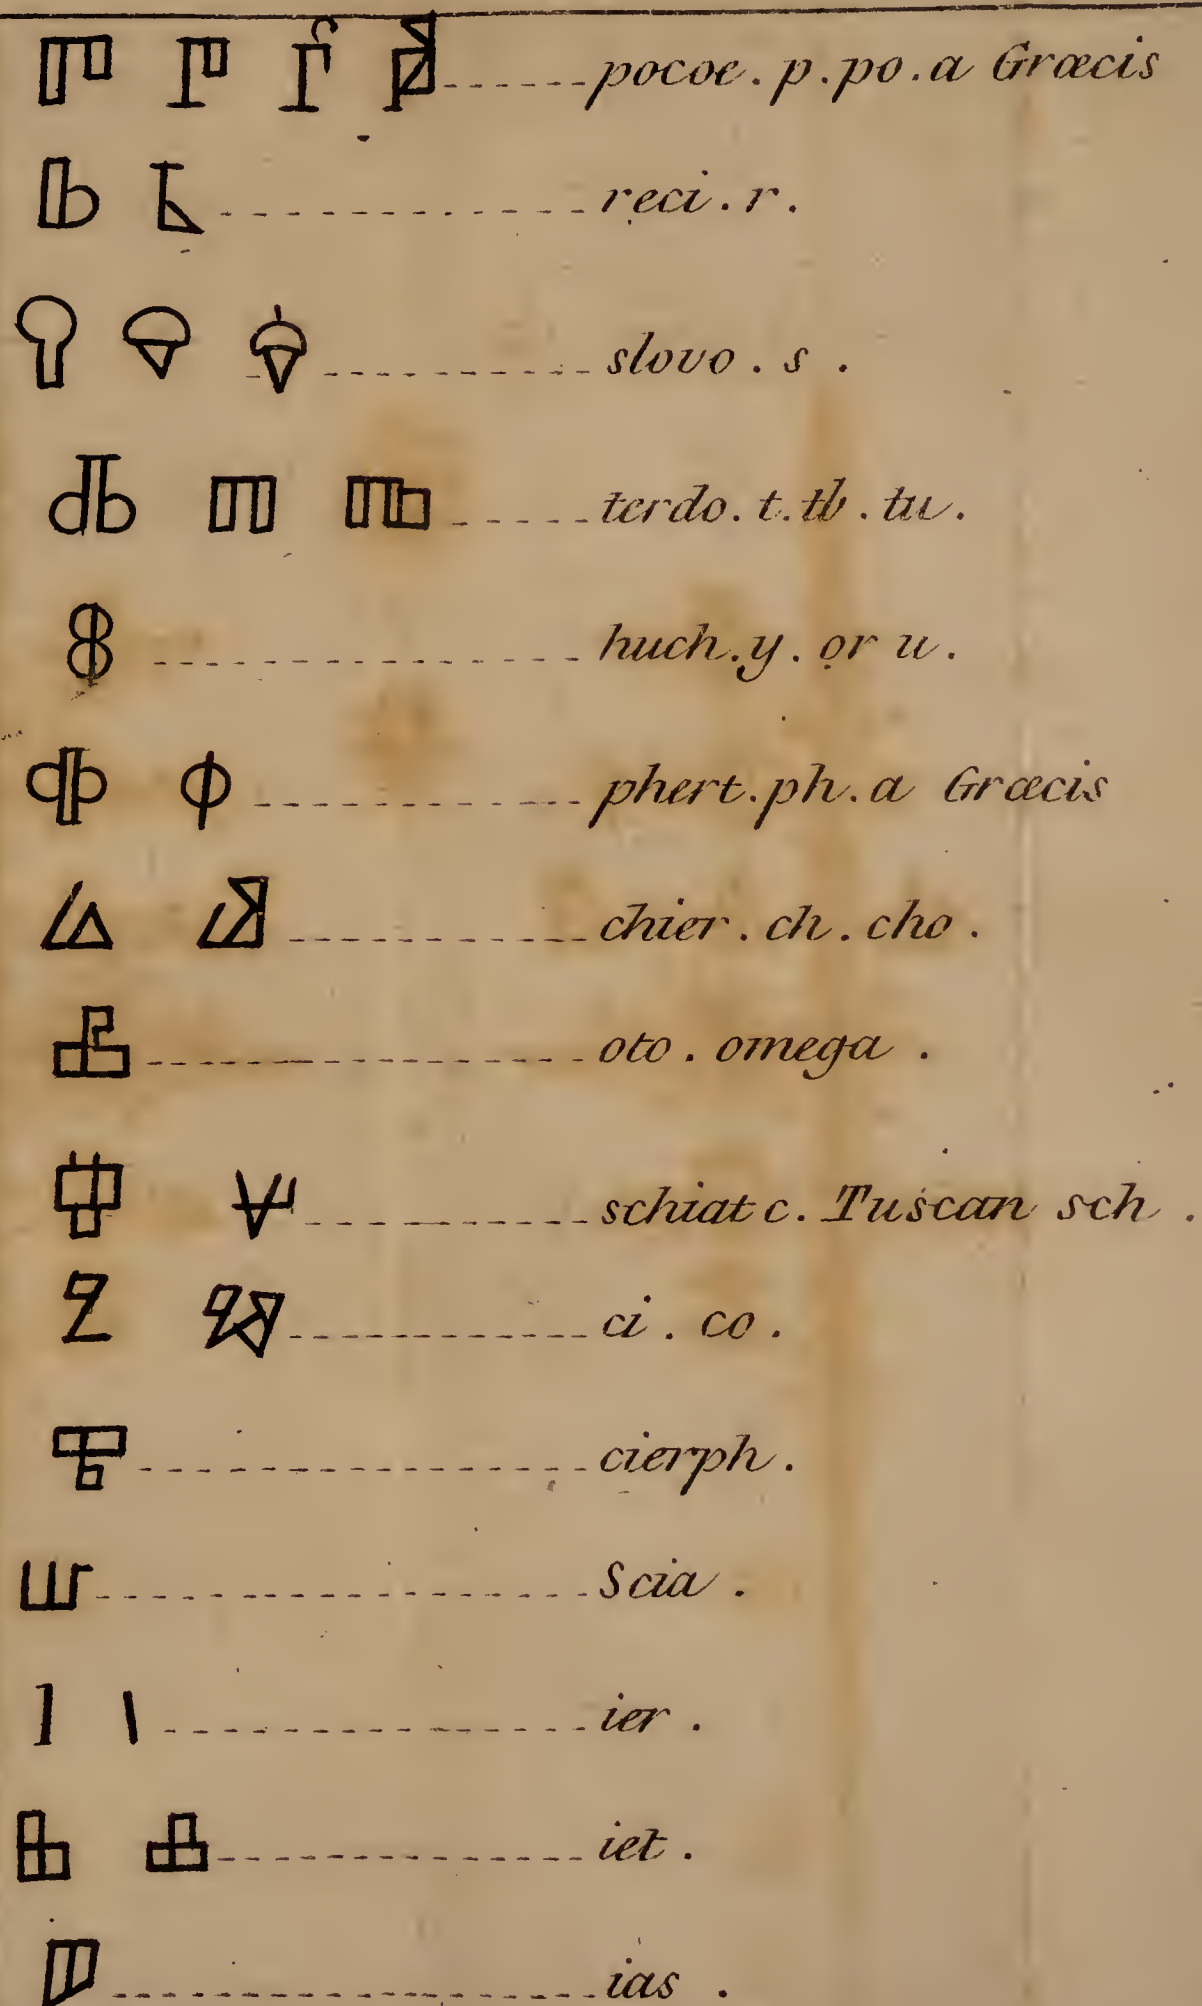 pocoe. p. po. a Græcis
reci. r.
slovo. s.
terdo. t. tb. tu.
huch. y. or u.
phert. ph. a Græcis
chier. ch. cho.
oto. omega.
schiat c. Tuscan sch.
ci. co.
cierph.
Scia.
ier.
iet.
ias.